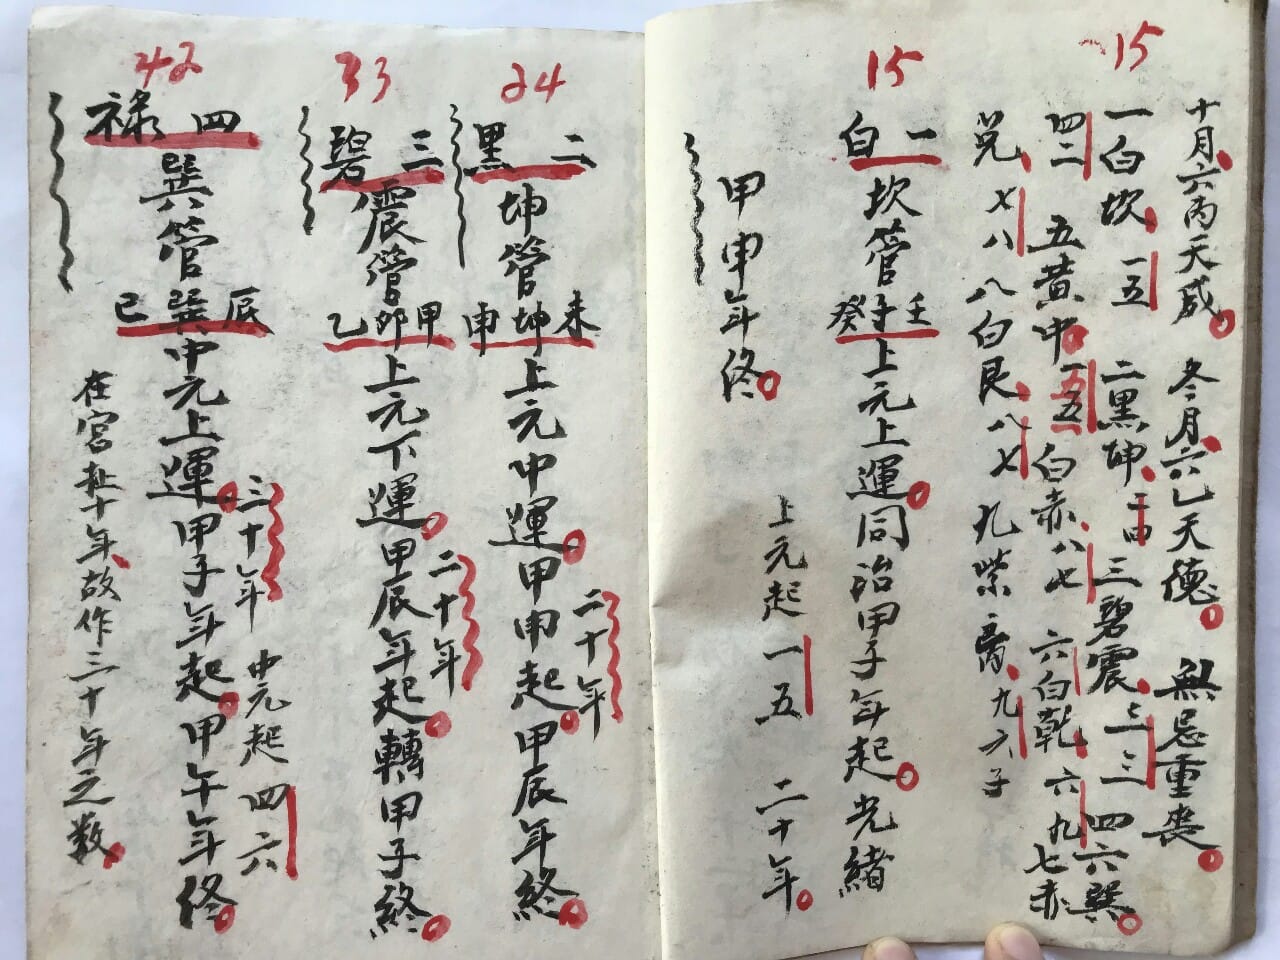 15
十月六丙天咸 冬月六乙天德 無忌重喪
一白坎 一五 二黑坤 二四 三碧震 三三 四六巽
四二 五黄中 一五 白赤 八七 六白乾 六九 七赤
兑 七八 八白艮 八七 九紫离 九六子
15
一白 坎管 壬子癸 上元上運 同治甲子年起 光緒
甲申年终 上元起 一五 二十年
24
二黑 坤管 未坤申 上元中運 甲申起 甲辰年終
二十年
33
三碧 震管 甲卯乙 上元下運 甲辰年起 轉甲子終
二十年
42
四禄 巽管 辰巽巳 中元上運 甲子年起 甲午年终
三十年 中元起 四六
在宫 十年 故作三十年之数